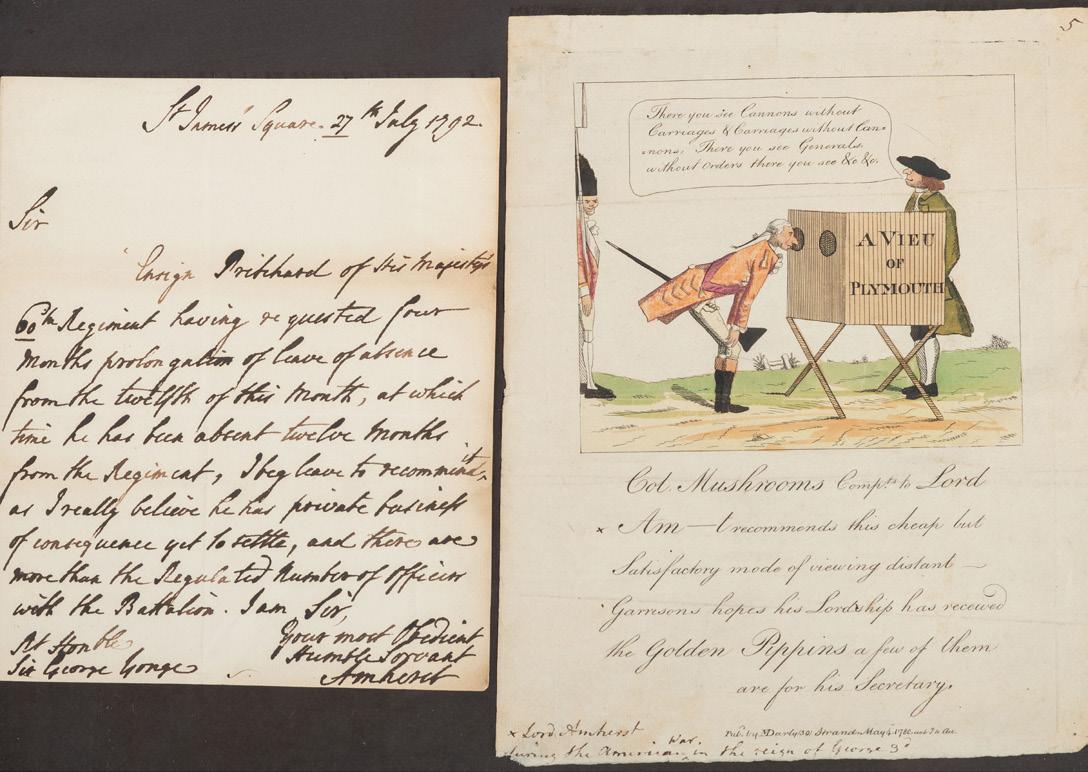 St James's Square. 27th July 1792.
Sir
Ensign Pritchard of His Majesty's
60th Regiment having requested four
Months prolongation of leave of absence
from the twelfth of this Month, at which
time he has been absent twelve Months
from the Regiment, I beg leave to recommend it,
as I really believe he has private business
of consequence yet to settle, and there are
more than the Regulated Number of Officers
with the Battalion. I am, Sir,
Your most Obedient
Humble Servant
Amherst
Rt Honble
Sir George Yonge
5
There you see Cannons without
Carriages & Carriages without Can-
-nons. There you see Generals
without Orders there you see &c &c.
A VIEU
OF
PLYMOUTH
Col. Mushrooms Compts. to Lord
x Am—t recommends this cheap but
Satisfactory mode of viewing distant —
Garrisons hopes his Lordship has received
the Golden Pippins a few of them
are for his Secretary.
Pub. by MDarly 39 Strand May 4
x Lord Amherst
during the American War. in the reign of George 3d